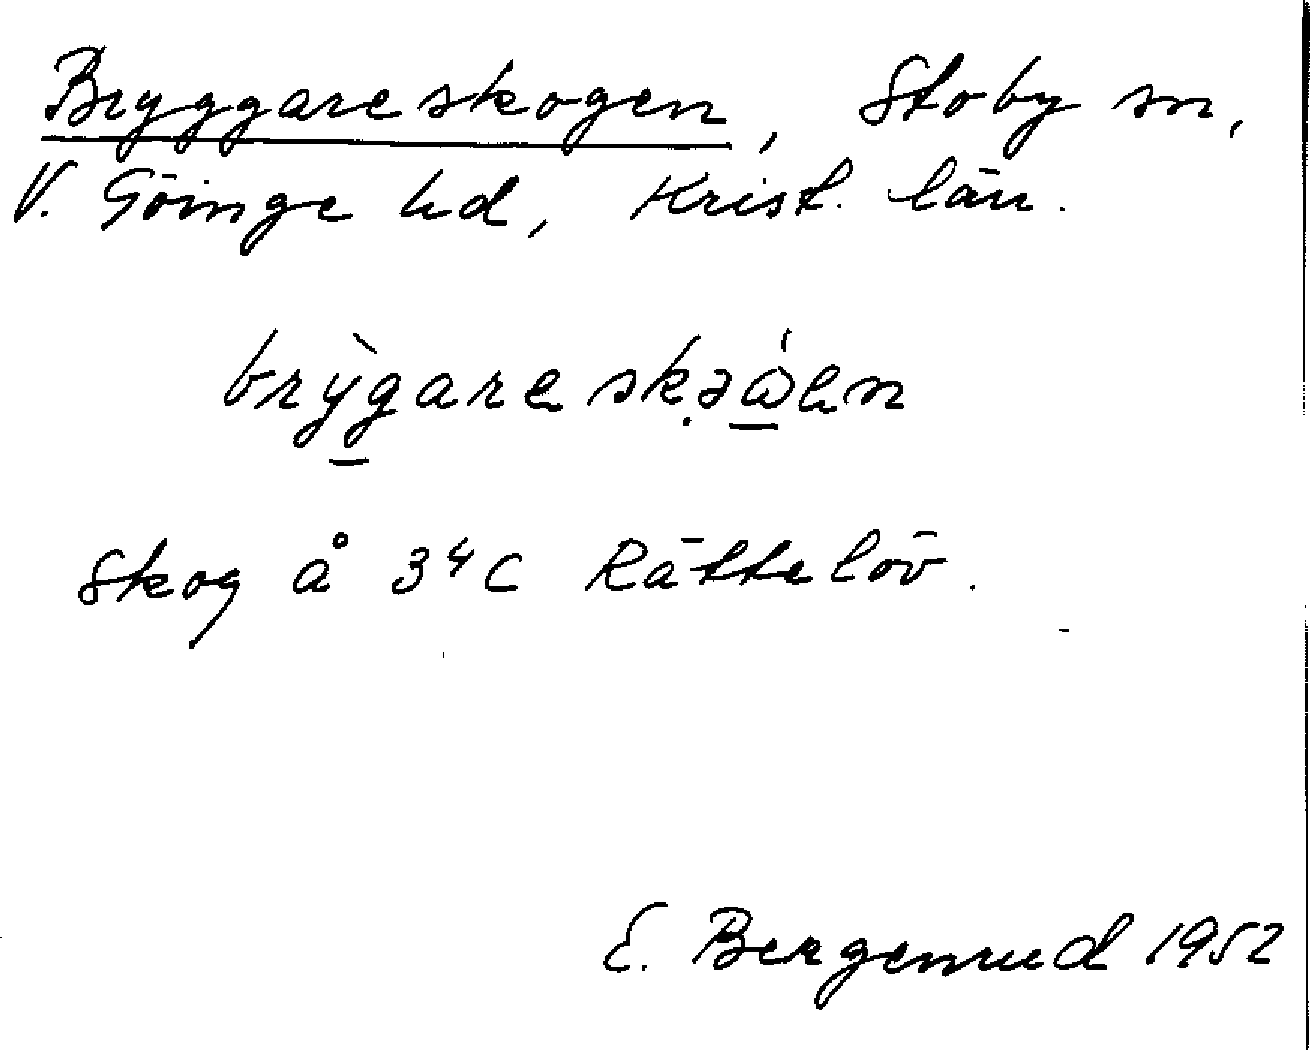 Bryggareskogen, Stoby sn,
V. Göinge hd, Krist. län.
brỳgareskəω̇en
Skog å 3⁴C Rättelöv.
E. Bergenrud 1952